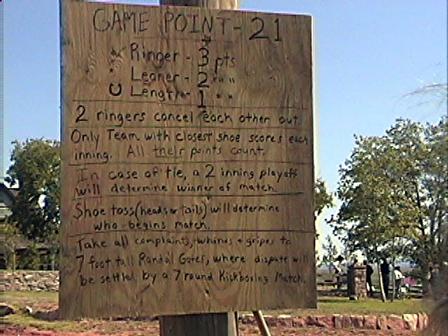 GAME POINT - 21
Ringer - 3 pts
Leaner - 2 " "
Length - 1 " "
2 ringers cancel each other out.
Only Team with closest shoe scores each
inning. All their points count.
In case of tie, a 2 inning playoff
will determine winner of match.
Shoe toss (heads or tails) will determine
who begins match.
Take all complaints, whines + gripes to
7 foot tall Randal Gater, where dispute will
be settled by a 7 round Kickboxing Match.